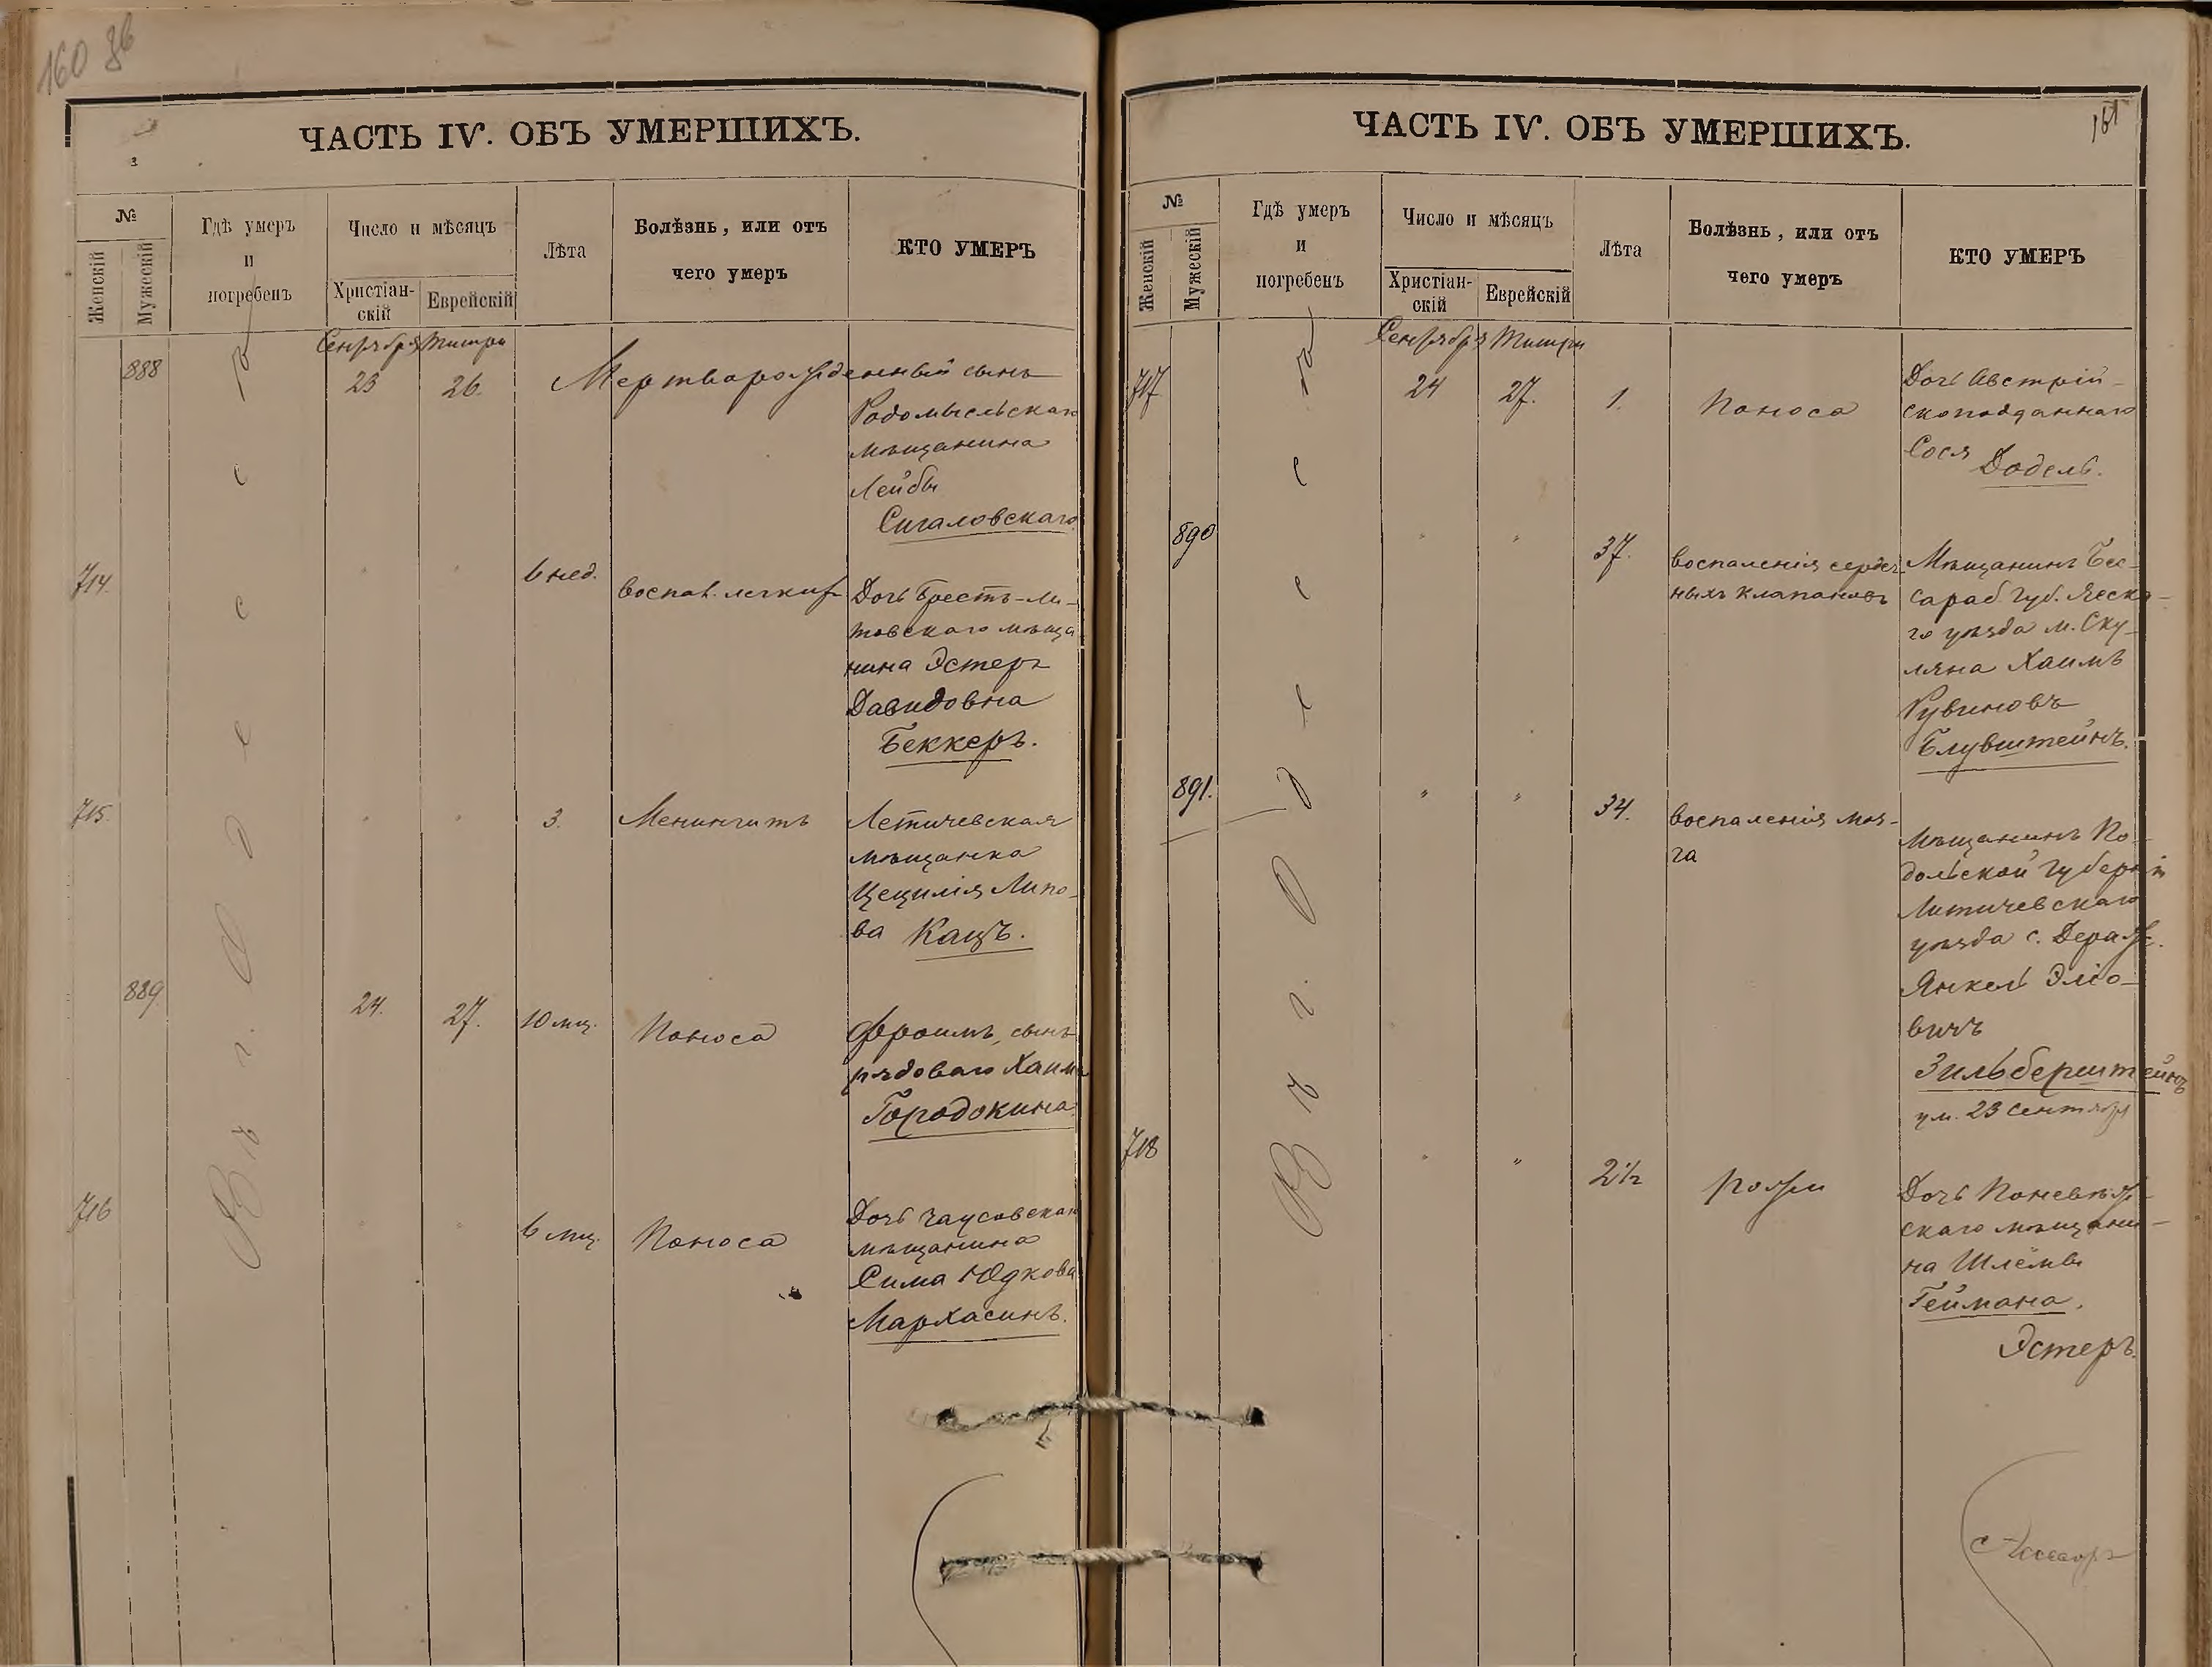 160 об
ЧАСТЬ IV. ОБЪ УМЕРШИХЪ.
№
Женскій
Мужескій
Гдѣ умеръ
и
погребенъ
Число и мѣсяцъ
Христіан-
скій
Еврейскій
Лѣта
Болѣзнь, или отъ
чего умеръ
КТО УМЕРЪ
Въ г. Одессѣ
Сентября Тишри
888 23 26. Мертворожденный сынъ
Родомысльскаго
мѣщанина
Лейбы
Сигаловскаго
714. " " 6 нед. воспал. легкихъ Дочь Брестъ-Ли-
товскаго мѣща
нина Эстеръ
Давидовна
Беккеръ.
715. " " 3. Менингитъ Летичевская
мѣщанка
Цецилія Липо-
ва Кацъ.
889. 24. 27. 10 мц. Поноса Фроимъ, сынъ
рядоваго Хаима
Городокина
716 " " 6 мц. Поноса Дочь Чаусовскаго
мѣщанина
Сима Юдкова
Мархасинъ.
161
ЧАСТЬ IV. ОБЪ УМЕРШИХЪ.
№
Женскій
Мужескій
Гдѣ умеръ
и
погребенъ
Число и мѣсяцъ
Христіан-
скій
Еврейскій
Лѣта
Болѣзнь, или отъ
чего умеръ
КТО УМЕРЪ
Въ г. Одессѣ
Сентября Тишри
717 24 27. 1. Поноса Дочь Австрій-
скоподданнаго
Сося Додель.
890 " " 37. воспаленія сердеч-
ныхъ клапановъ
Мѣщанинъ Бес-
сараб. губ. Ясска-
го уѣзда м. Ску-
ляна Хаимъ
Рувиновъ
Блувштейнъ.
891. " " 34. воспаленія моз-
га
Мѣщанинъ По-
дольской губерніи
Литичевскаго
уѣзда с. Дераж.
Янкель Эліо-
вичъ
Зильберштейнъ
ум. 23 Сентября
718 " " 2½ рожи Дочь Поневѣж-
скаго мѣщани-
на Шлёмы
Геймана.
Эстеръ.